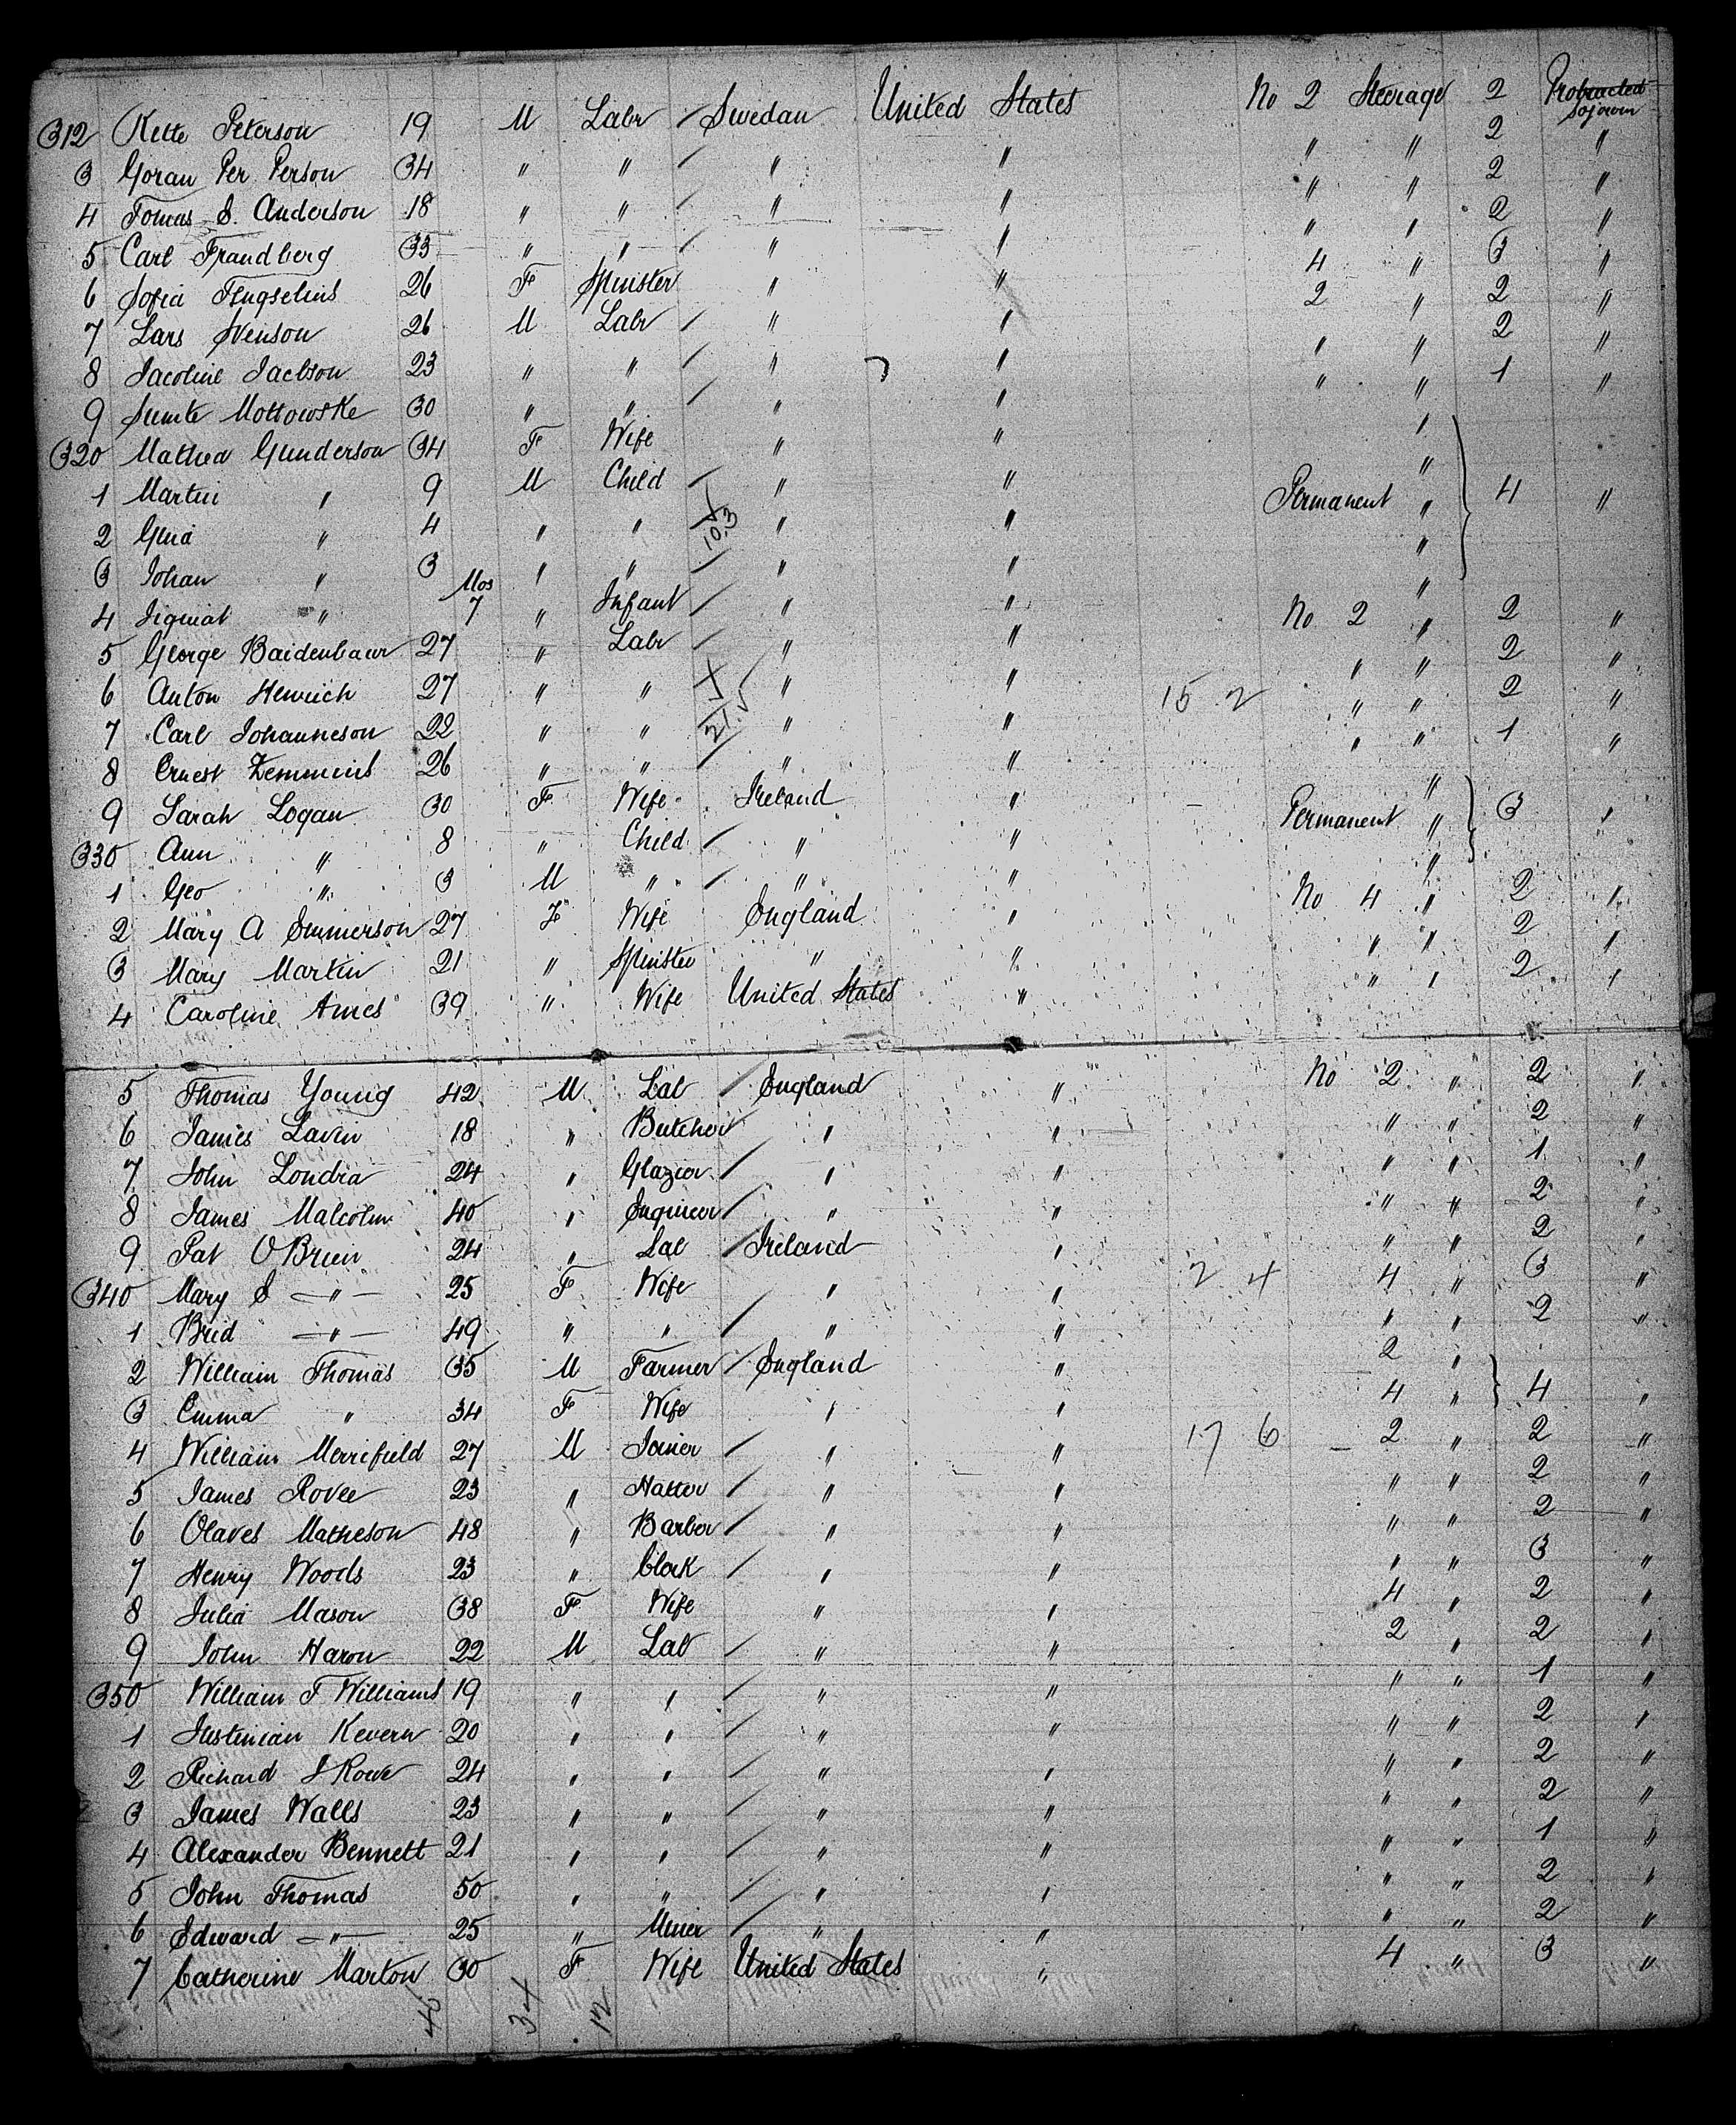 312 Kette Peterson 19 M Labr / Swedan United States No 2 Steerage 2 Protracted sojourn
3 Goran Per Person 34 " " / " " " " 2 "
4 Tomas S. Anderson 18 " " / " " " " 2 "
5 Carl Frandberg 33 " " / " " " " 2 "
6 Sofia 26 F Spinster " " 4 " 3 "
7 Lars Svenson 26 M Labr / " " 2 " 2 "
8 Jacoline Jacbson 23 " " / " " " " 2 "
9 Mottowske 30 " " / " " " " 1 "
320 Mathea Gunderson 34 F Wife " " "
1 Martin " 9 M Child / " " Permanent " } 4 "
2 Gina " 4 " " 10.3 " " "
3 Johan " 3 " " / " " "
4 " Mos 7 " Infant / " " "
5 George Baidenbaur 27 " Labr / " " No 2 " 2 "
6 Anton Henrich 27 " " / " " 15 2 " " 2 "
7 Carl Johanneson 22 " " 21 " " " " 2 "
8 Ernest Zemmins 26 " " / " " " " 1 "
9 Sarah Logan 30 F Wife Ireland " "
330 Ann " 8 " Child / " " Permanent " } 3 "
1 Geo " 3 M " / " " "
2 Mary A Emmerson 27 F Wife England " No 4 " 2 "
3 Mary Martin 21 " Spinster " " " " 2 "
4 Caroline Ames 39 " Wife United States " " " 2 "
5 Thomas Young 42 M Lab / England " No 2 " 2 "
6 James Lavin 18 " Butcher " " " " 2 "
7 John Londra 24 " Glazier / " " " " 1 "
8 James Malcolm 40 " Engineer / " " " " 2 "
9 Pat O'Brien 24 " Lab / Ireland " " " 2 "
340 Mary S — " — 25 F Wife " " 2 4 4 " 3 "
1 Brid — " — 49 " " / " " " " 2 "
2 William Thomas 35 M Farmer / England " 2 "
3 Emma " 34 F Wife " " 4 " } 4 "
4 William Merrifield 27 M Joiner / " " 17 6 2 " 2 "
5 James Rovee 23 " Hatter / " " " " 2 "
6 Olaves Matheson 48 " Barber / " " " " 2 "
7 Henry Woods 23 " Clerk / " " " " 3 "
8 Julia Mason 38 F Wife " " 4 " 2 "
9 John Haron 22 M Lab / " " 2 " 2 "
350 William F Williams 19 " " / " " " " 1 "
1 Justinian Kevern 20 " " / " " " " 2 "
2 Richard J Rowe 24 " " / " " " " 2 "
3 James Walls 23 " " / " " " " 2 "
4 Alexander Bennett 21 " " / " " " " 1 "
5 John Thomas 50 " " / " " " " 2 "
6 Edward — " — 25 " Miner / " " " " 2 "
7 Catherine Marton 30 F Wife United States " 4 " 3 "
34 12